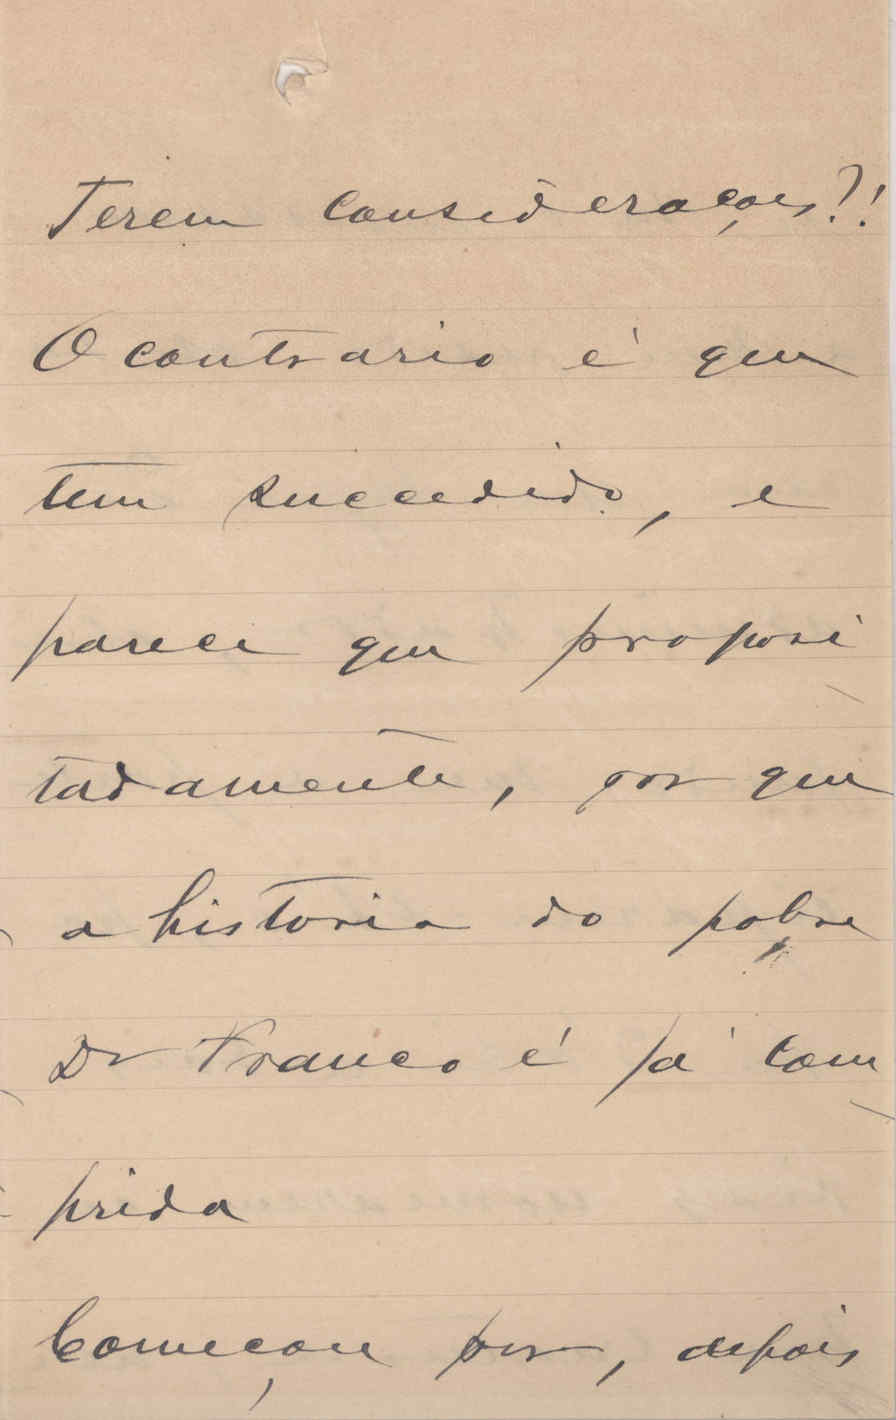 Terem considerações?!
O contrario é que
tem succedido, e
parece que proposi
tadamente, por que
a historia do pobre
Dr Franco é já com
prida
Começou por, depois